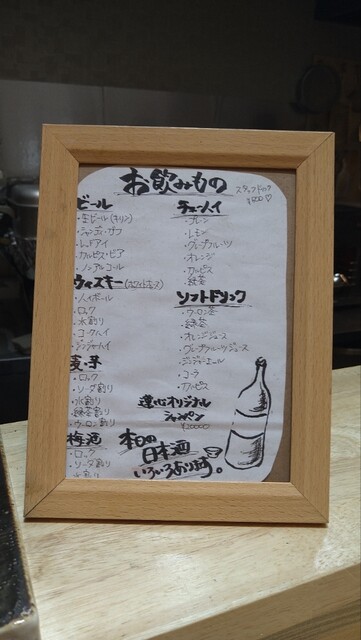 お飲みもの
スタッフドリンク
¥500♡
ビール
・生ビール(キリン)
・シャンディ・ガフ
・レッドアイ
・カルピス・ビア
・ノンアルコール
ウィスキー(ホワイトホース)
・ハイボール
・ロック
・水割り
・コークハイ
・ジンジャーハイ
麦・芋
・ロック
・ソーダ割り
・水割り
・緑茶割り
・ウーロン割り
梅酒
・ロック
・ソーダ割り
・水割り
チューハイ
・プレーン
・レモン
・グレープフルーツ
・オレンジ
・カルピス
・緑茶
ソフトドリンク
・ウーロン茶
・緑茶
・オレンジジュース
・グレープフルーツジュース
・ジンジャーエール
・コーラ
・カルピス
オリジナル
シャンパン
¥20000
本日の
日本酒
いろいろあります。